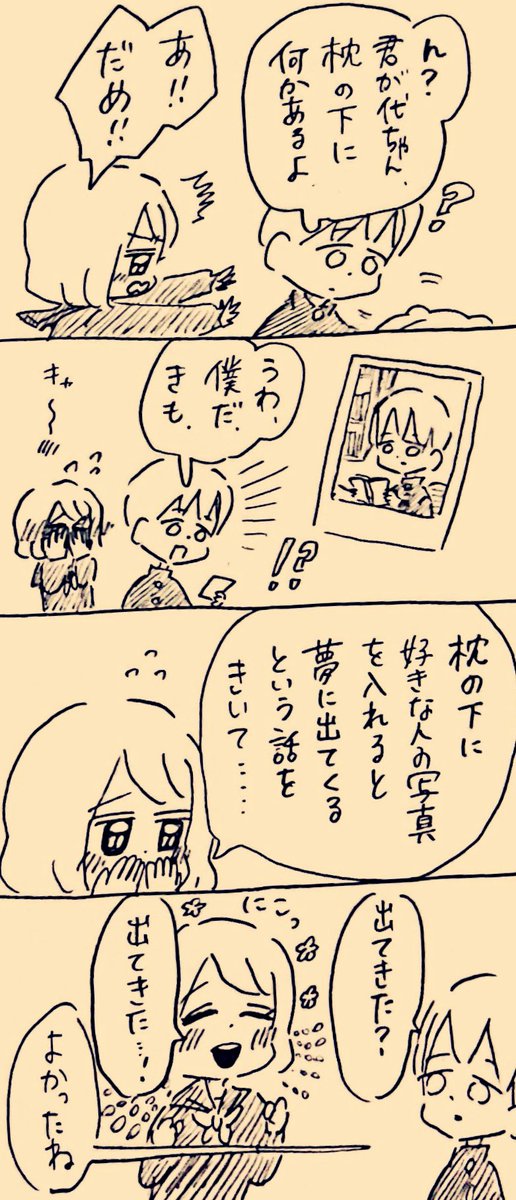 ん?
君が代ちゃん、
枕の下に
何かあるよ
あ!!
だめ!!
?
うわ、
僕だ、
きも、
!?
キャ〜
枕の下に
好きな人の写真
を入れると
夢に出てくる
という話を
きいて……
出てきた?
にこっ
出てきた…!
よかったね